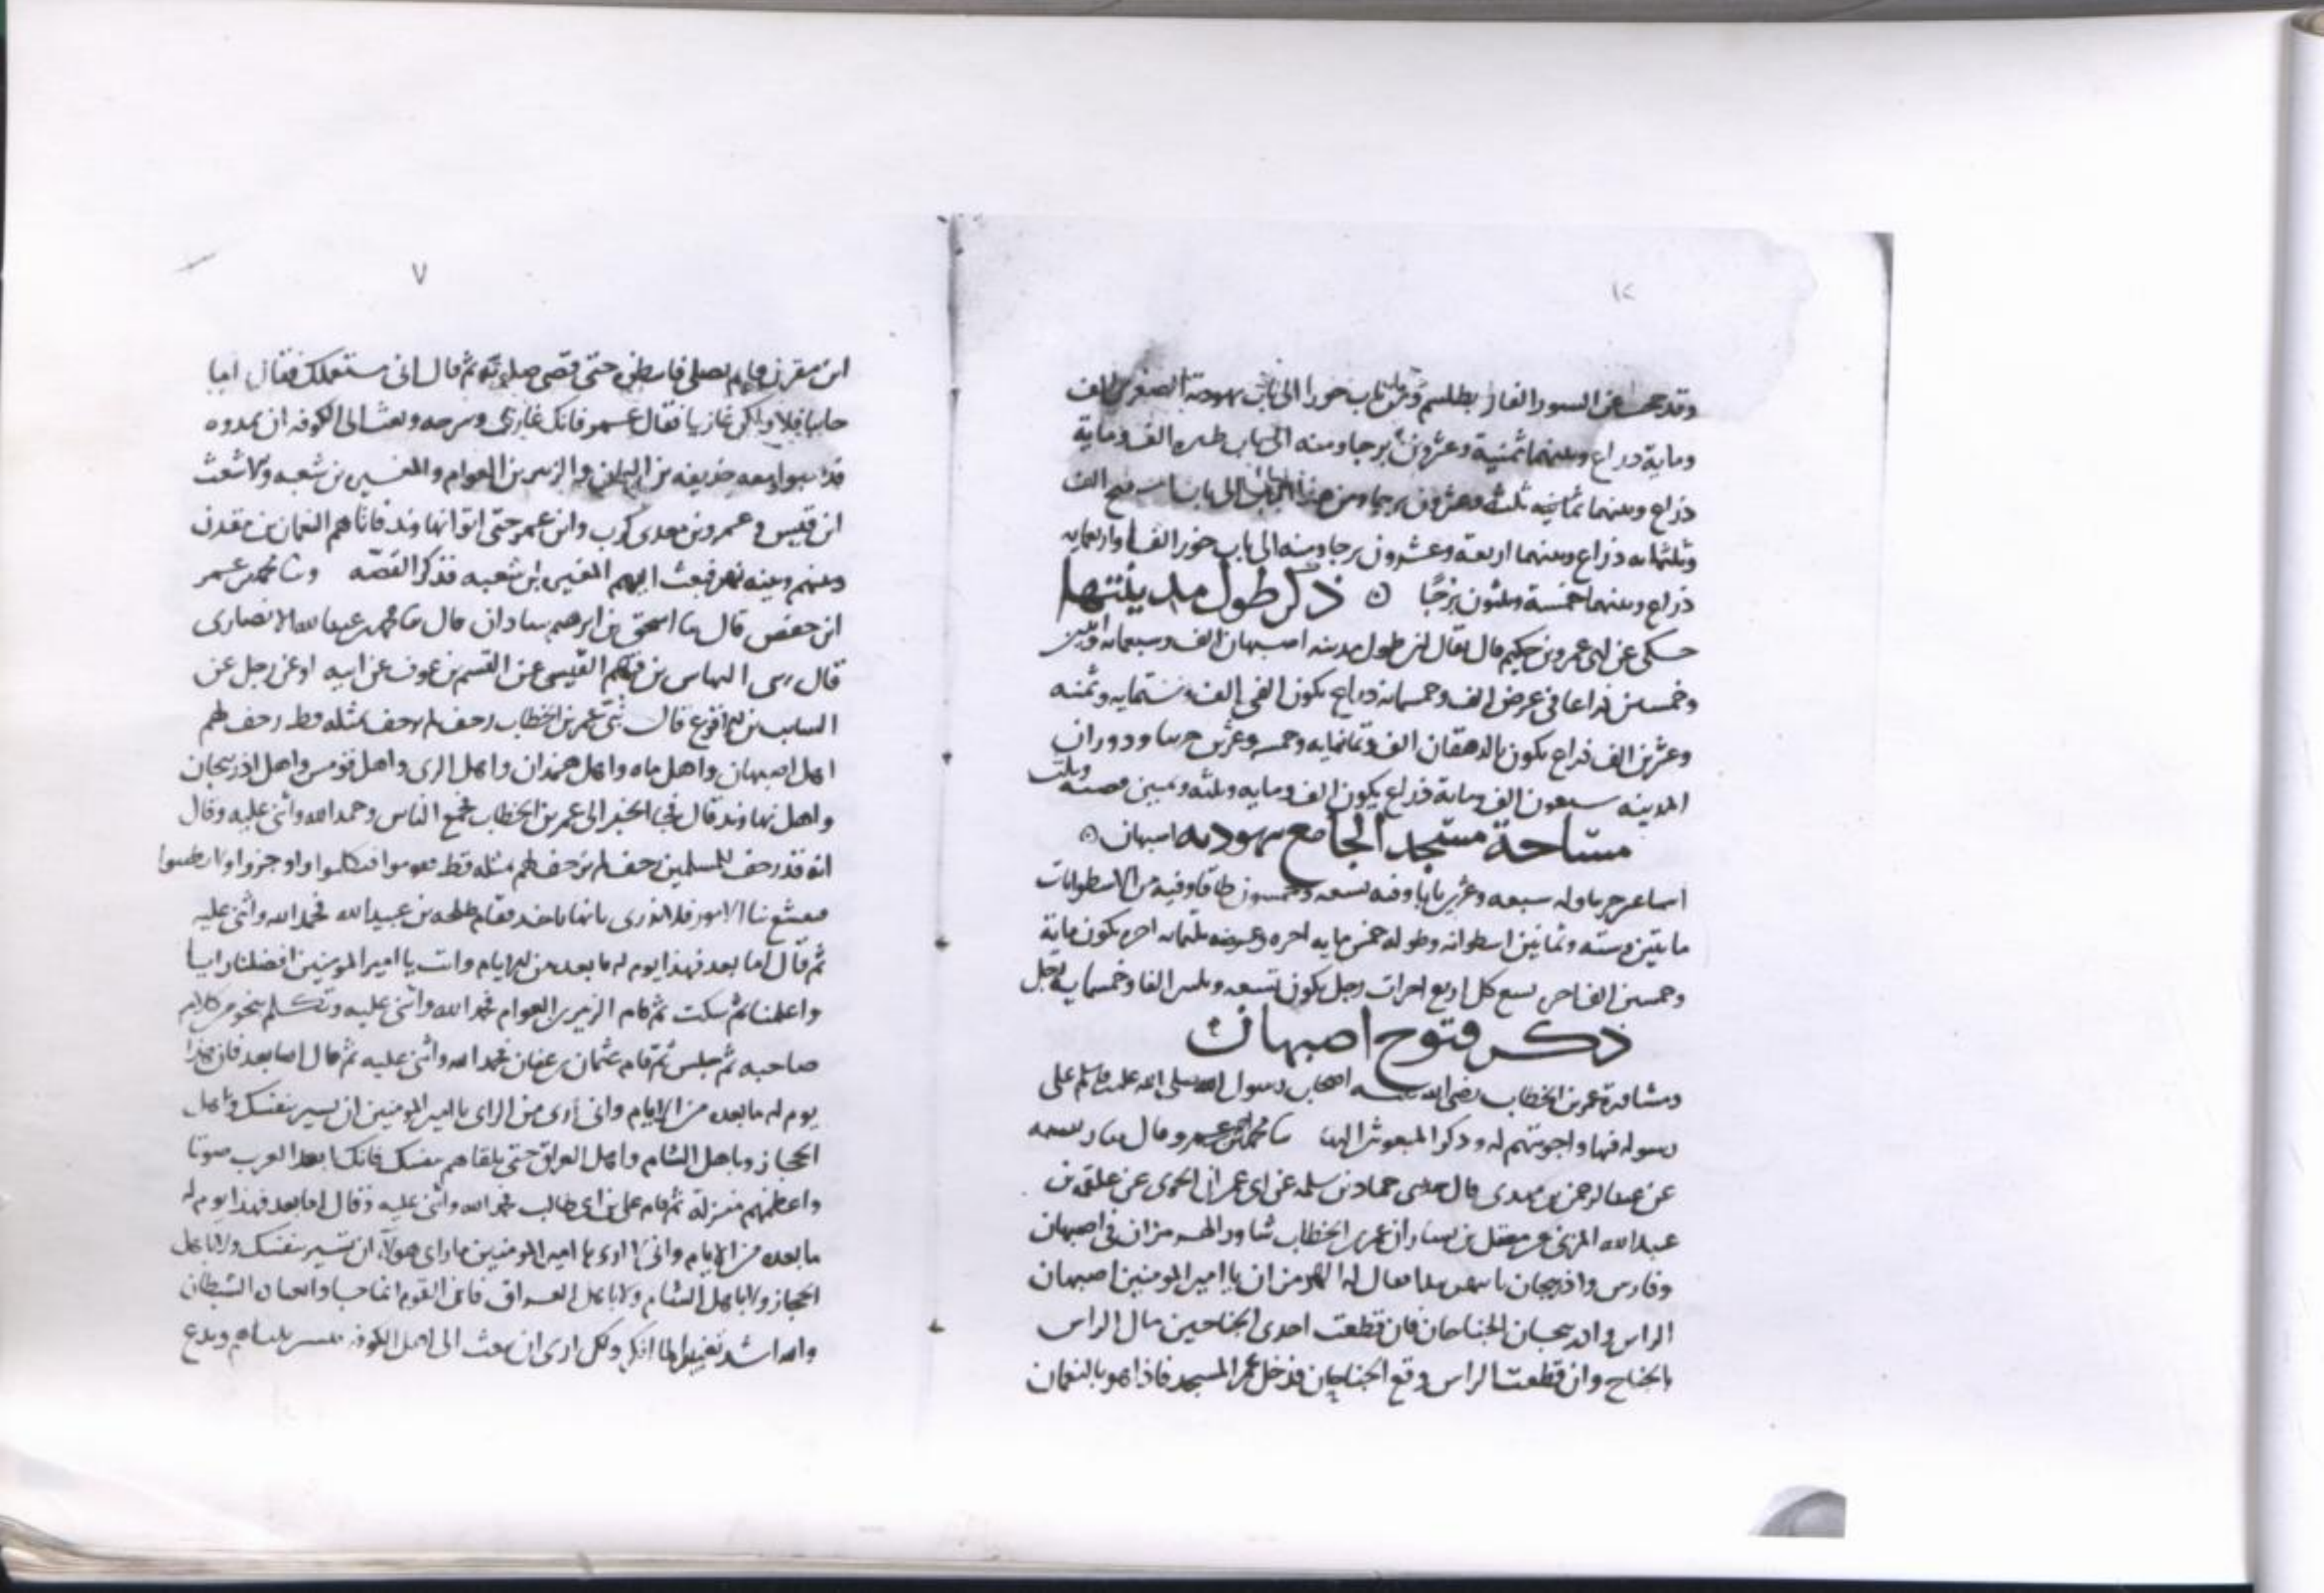 ١٢
وماية ذراع وبينهما ثمنية وعشرون برجا ومنه الى باب الف وماية
ذراع وبينهما ثلثة وعشرون برجا ومن هذا الباب الى باب الف
وثلثمايه ذراع وبينهما اربعة وعشرون برجا ومنه الى باب خور الف واربعمايه
ذراع وبينهما خمسة وثلثون برجًا ذكر طول مدينتها
حكى عن ابى عمرو بن حكيم قال يقال ان طول مدينه اصبهان الف وسبعمايه
وخمسين ذراعا فى عرض الف وخمسمايه ذراع يكون الفى الف وستمايه وثمنه
وعشرين الف ذراع يكون بالدهقان الف وثمانمايه وخمسه وعشرين جريبا ودوران
المدينه سبعون الف وماية ذراع يكون الف ومايه وثلثه
مساحة مسجد الجامع بيهوديه اصبهان
جريبا وله سبعه وعشرين بابا وفيه تسعه وخمسون طاقا وفيه من الاسطوانات
مايتين وسته وثمانين اسطوانه وطوله خمس مايه اجره وعرضه ثلثمايه اجره يكون ماية
وخمسين الف اجره يسع كل اربع اجرات رجل يكون تسعه وثلثين الفا وخمسمايه رجل
ذكر فتوح اصبهان
ومشاورة عمر بن الخطاب رضى الله عنه اصحاب رسول الله صلى الله عليه وسلم على
رسوله فيها واجوبتهم له وذكر المبعوث اليها محمد بن عمرو قال
عن عبد الرحمن بن مهدى قال حدثنى حماد بن سلمه عن ابى عمران الجونى عن علقمه بن
عبد الله المزنى عن معقل بن يسار ان عمر بن الخطاب شاور الهرمزان فى اصبهان
وفارس واذربيجان بايهن يبدا فقال له الهرمزان يا امير المومنين اصبهان
الراس واذربيجان الجناحان فان قطعت احدى الجناحين مال الراس
بالجناح وان قطعت الراس وقع الجناحان فدخل عمر المسجد فاذا هو بالنعمان
٧
ابن مقرن قايم يصلى فانتظره حتى قضى صلوته ثم قال انى مستعملك فقال اما
جابيا فلا ولكن غازيا فقال عمر فانك غازى وسرحه وبعث الى الكوفه ان يمدوه
معه حذيفه بن اليمان والزبير بن العوام والمغيره بن شعبه والاشعث
ابن قيس وعمرو بن معدى كرب وابن عمر حتى اتوا نهاوند فاتاهم النعمان بن مقرن
وبينهم وبينه نهر فبعث اليهم المغيره بن شعبه فذكر القصّه محمد بن عمر
ابن حفص قال اسحق بن ابرهيم شاذان قال محمد بن عبد الله الانصارى
قال النهاس بن قهم القيسى عن القسم بن عوف عن ابيه او عن رجل عن
السايب بن الاقرع قال عمر بن الخطاب زحف لم يزحف بمثله قط زحف لهم
اهل اصبهان واهل ماه واهل همدان واهل الرى واهل قومس واهل اذربيجان
واهل نهاوند قال فجا الخبر الى عمر بن الخطاب فجمع الناس وحمد الله واثنى عليه وقال
انه قد زحف للمسلمين زحف لم يزحف لهم بمثله قط فقوموا فتكلموا واوجزوا ولا تطنبوا
فتفشغ بنا الامور فلا ندرى بايها ناخذ فقام طلحه بن عبيد الله فحمد الله واثنى عليه
ثم قال اما بعد فهذا يوم له ما بعده من الايام وانت يا امير المومنين افضلنا رايا
واعلمنا ثم سكت ثم قام الزبير بن العوام فحمد الله واثنى عليه وتكلم بنحو من كلام
صاحبه ثم جلس ثم قام عثمان بن عفان فحمد الله واثنى عليه ثم قال اما بعد فان هذا
يوم له ما بعده من الايام وانى ارى من الراى يا امير المومنين ان تسير بنفسك واهل
الحجاز وباهل الشام واهل العراق حتى تلقاهم بنفسك فانك ابعد العرب صوتا
واعظمهم منزلة ثم قام على بن ابى طالب فحمد الله واثنى عليه وقال اما بعد فهذا يوم له
ما بعده من الايام وانى لا ارى يا امير المومنين ما راى هولاء ان تسير بنفسك ولا باهل
الحجاز ولا باهل الشام ولا باهل العراق فان القوم انما جاوا الشيطان
والله اشد تغييرا لما انكر ولكن ارى ان تبعث الى اهل الكوفه ويدع